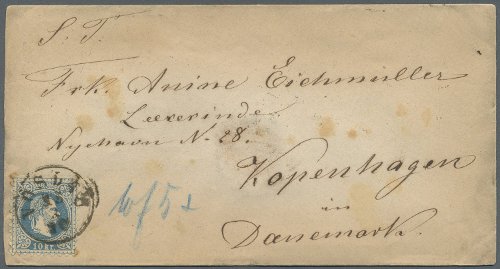 S. T.
Frk. Anine Eichmüller
Lærerinde
Nyhavn N. 28.
Kopenhagen
in
Danemark.
10 KR.